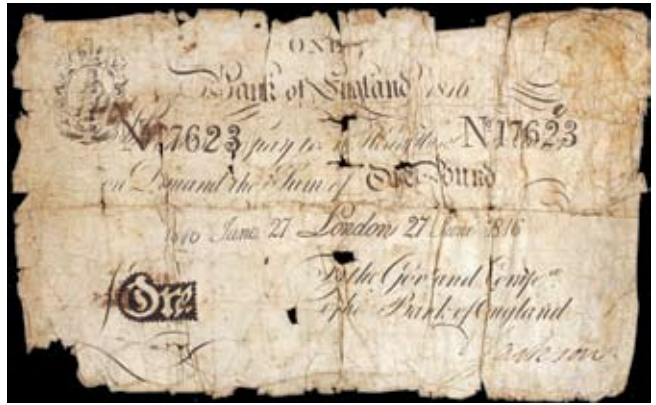 ONE
Bank of England 1816
No 17623 pay to No 17623
on Demand the Sum of One Pound
1816 June 27 London 27 June 1816
For the Gov. and Compa.
of the Bank of England
One